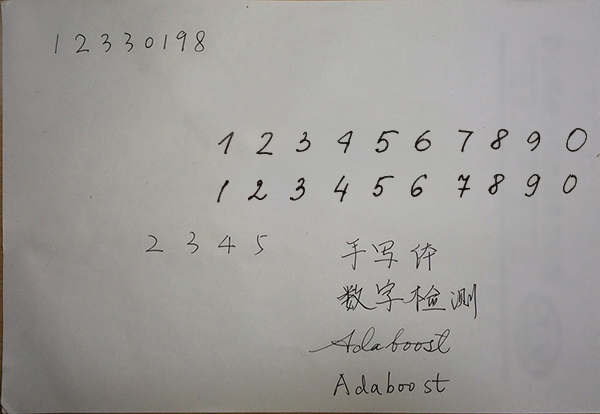 12330198
1 2 3 4 5 6 7 8 9 0
1 2 3 4 5 6 7 8 9 0
2 3 4 5
手写体
数字检测
Adaboost
Adaboost